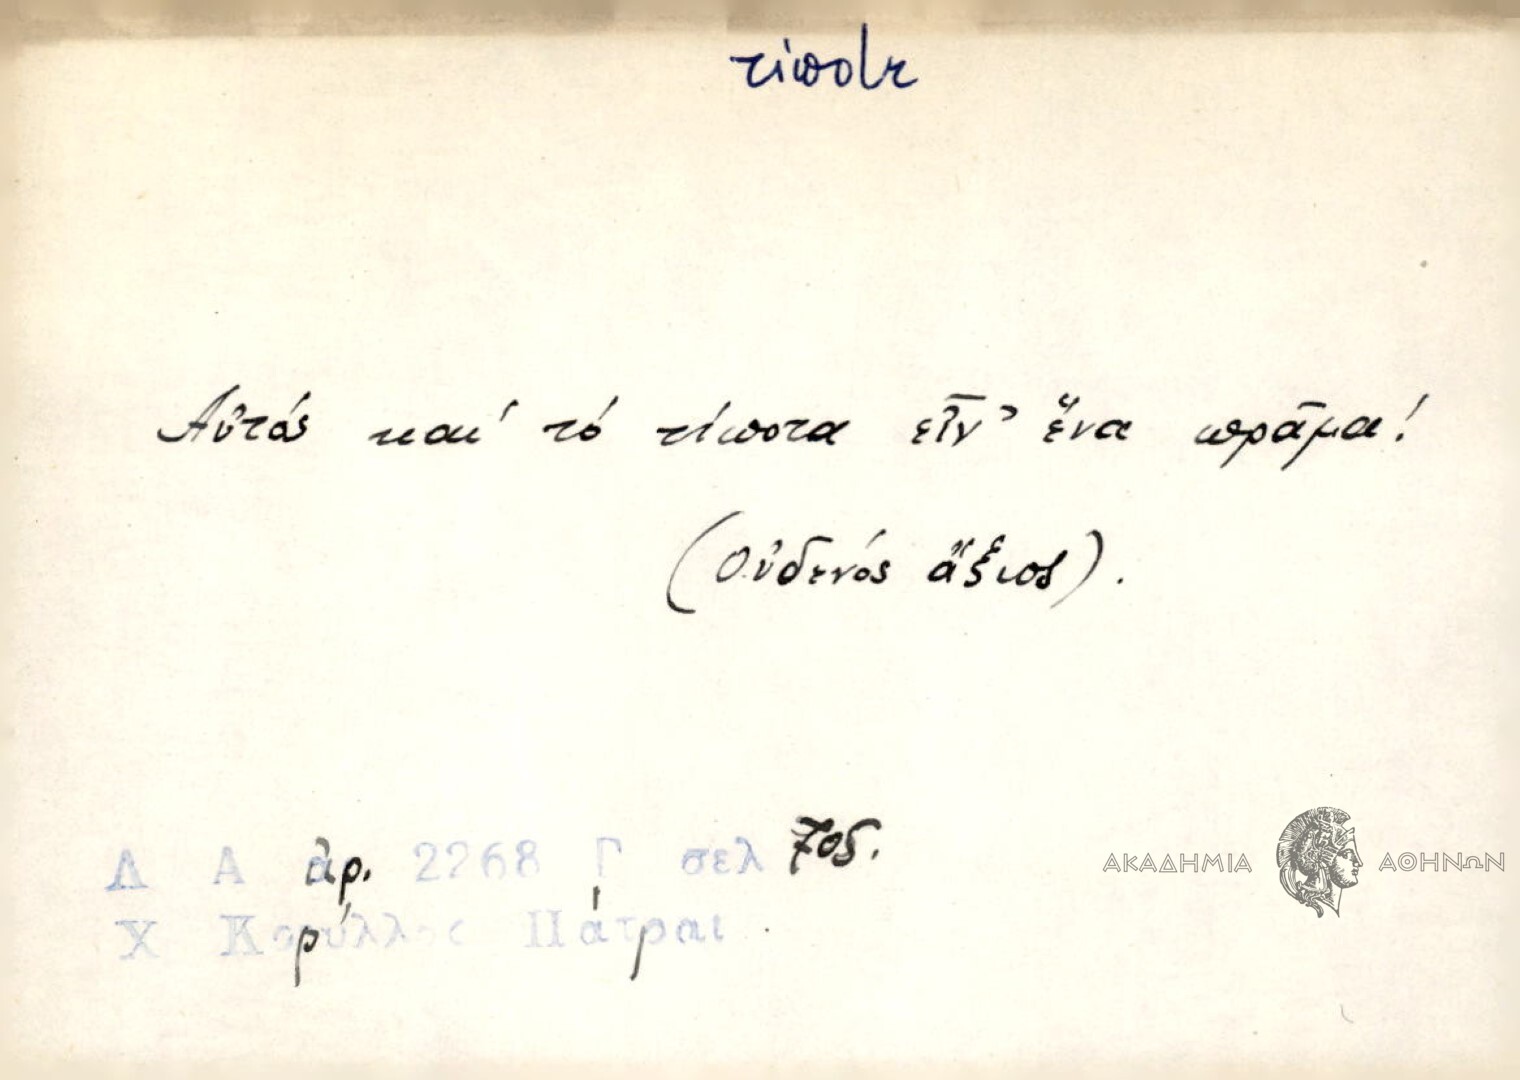 τίποτε
Αὐτός καί τό τίποτα εἶν' ἕνα πρᾶμα!
(Οὐδενός ἄξιος).
Λ Α ἀρ. 2268 Γ σελ 705.
Χ Κορύλλος Πάτραι
ΑΚΑΔΗΜΙΑ ΑΘΗΝΩΝ